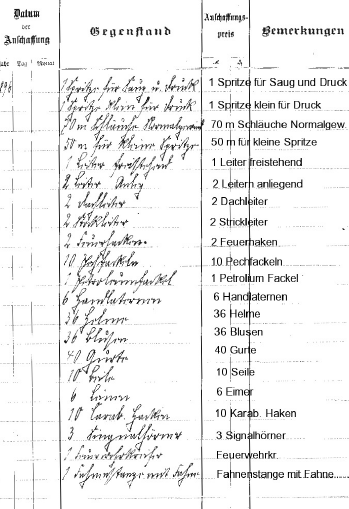 Datum
der
Anschaffung
Gegenstand
Anschaffungs-
preis
Bemerkungen
Jahr Tag Monat
1 Spritze für Saug u. Druck 1 Spritze für Saug und Druck
1 Spritze klein für Druck 1 Spritze klein für Druck
70 m Schläuche Normalgewind 70 m Schläuche Normalgew.
50 m für kleine Spritze 50 m für kleine Spritze
1 Leiter freistehend 1 Leiter freistehend
2 Leiter Anleg 2 Leitern anliegend
2 Dachleiter 2 Dachleiter
2 Strickleiter 2 Strickleiter
2 Feuerhacken 2 Feuerhaken
10 Pechfackeln 10 Pechfackeln
1 Petroleumfackel 1 Petrolium Fackel
6 Handlaternen 6 Handlaternen
36 Helme 36 Helme
36 Blusen 36 Blusen
40 Gurte 40 Gurte
10 Seile 10 Seile
6 Eimer 6 Eimer
10 Carab. Hacken 10 Karab. Haken
3 Singnalhörner 3 Signalhörner
1 Feuerwehrkr. Feuerwehrkr.
1 Fahnenstange mit Fahne Fahnenstange mit Fahne......